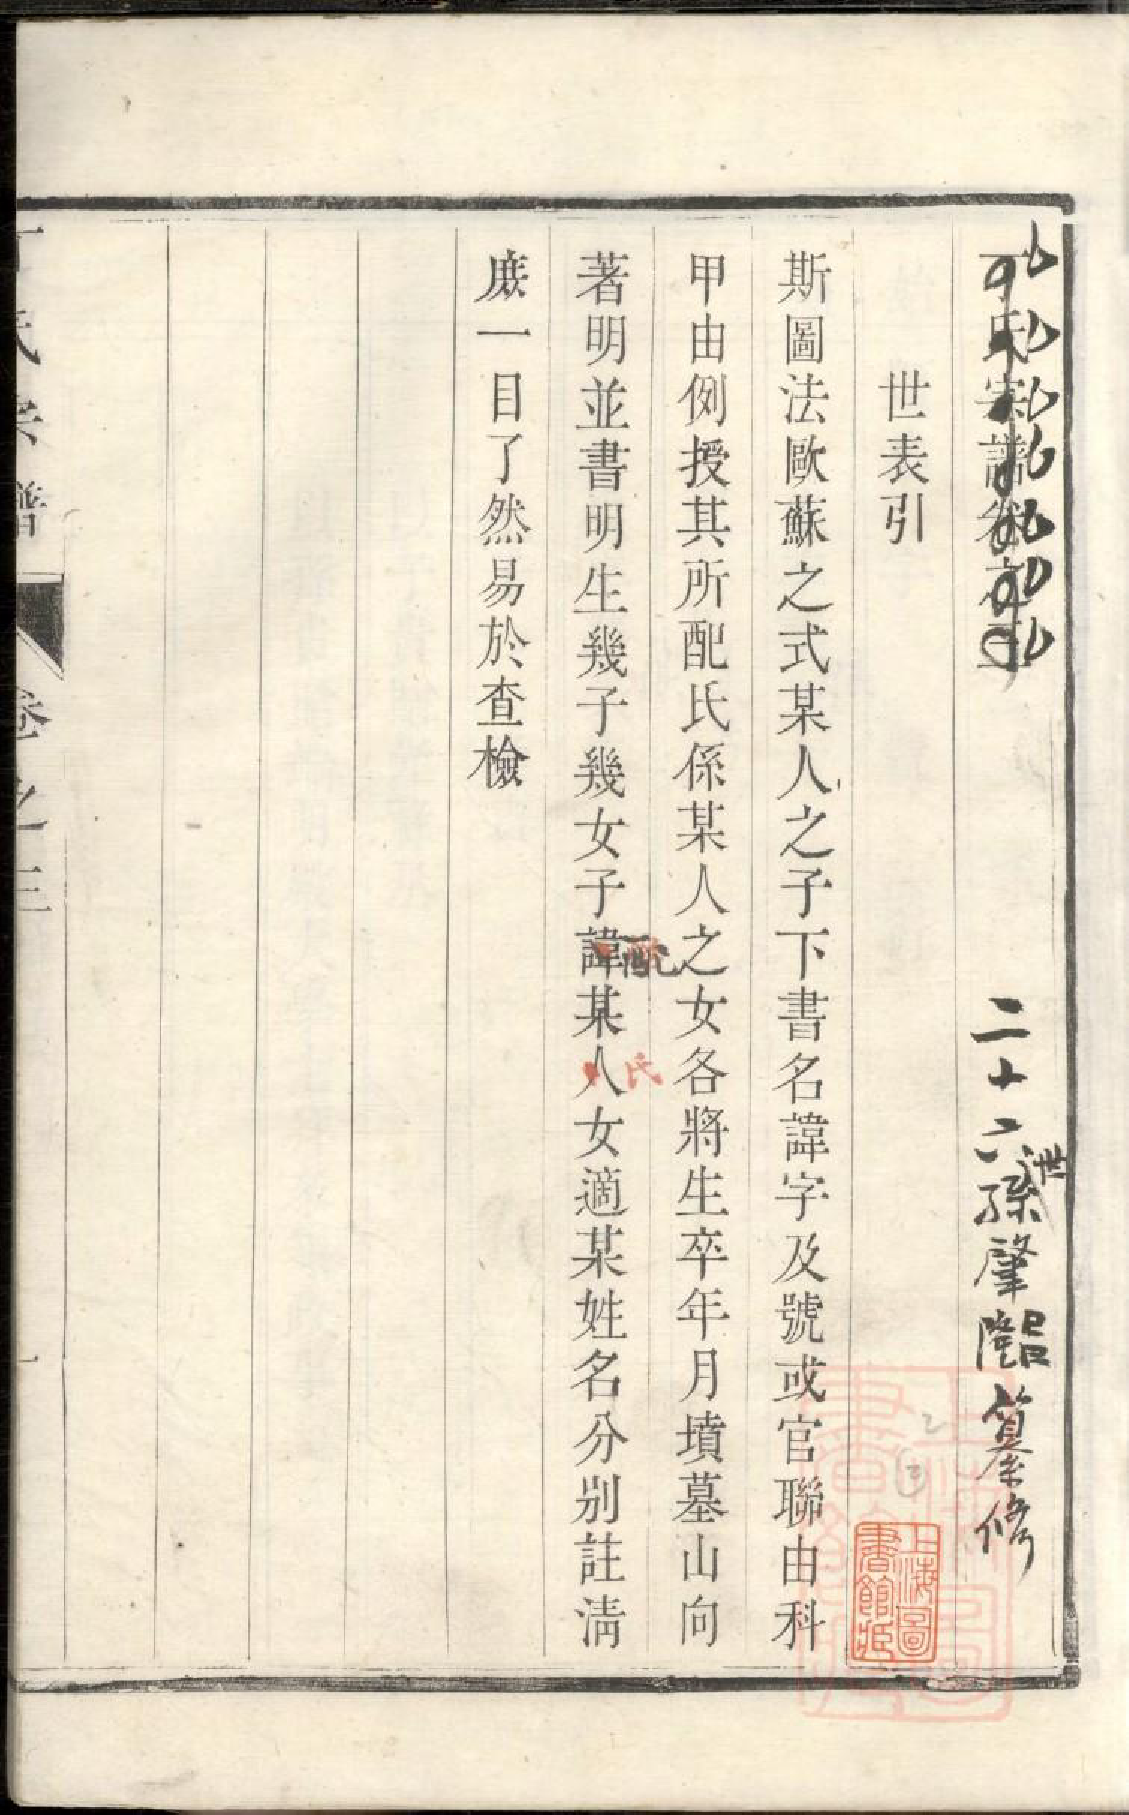 丁氏宗譜卷之三
二十六世孫肇
纂修
世表引
斯圖法歐蘇之式某人之子下書名諱字及號或官聯由科
甲由例授其所配氏係某人之女各將生卒年月墳墓山向
著明並書明生幾子幾女子諱某人女適某姓名分別註清
配
氏
庶一目了然易於查檢
氏宗譜
卷之三
一
上海圖書館藏